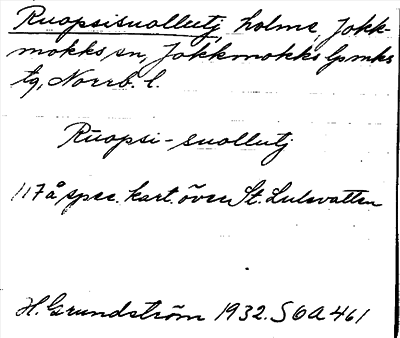 Ruopsisuollutj, holme, Jokk-
mokks sn, Jokkmokks lpmks
tg, Norrb. l.
Ruopsi-suollutj
117 å spec. kart. över St. Lulevatten
H. Grundström 1932. SOA 461